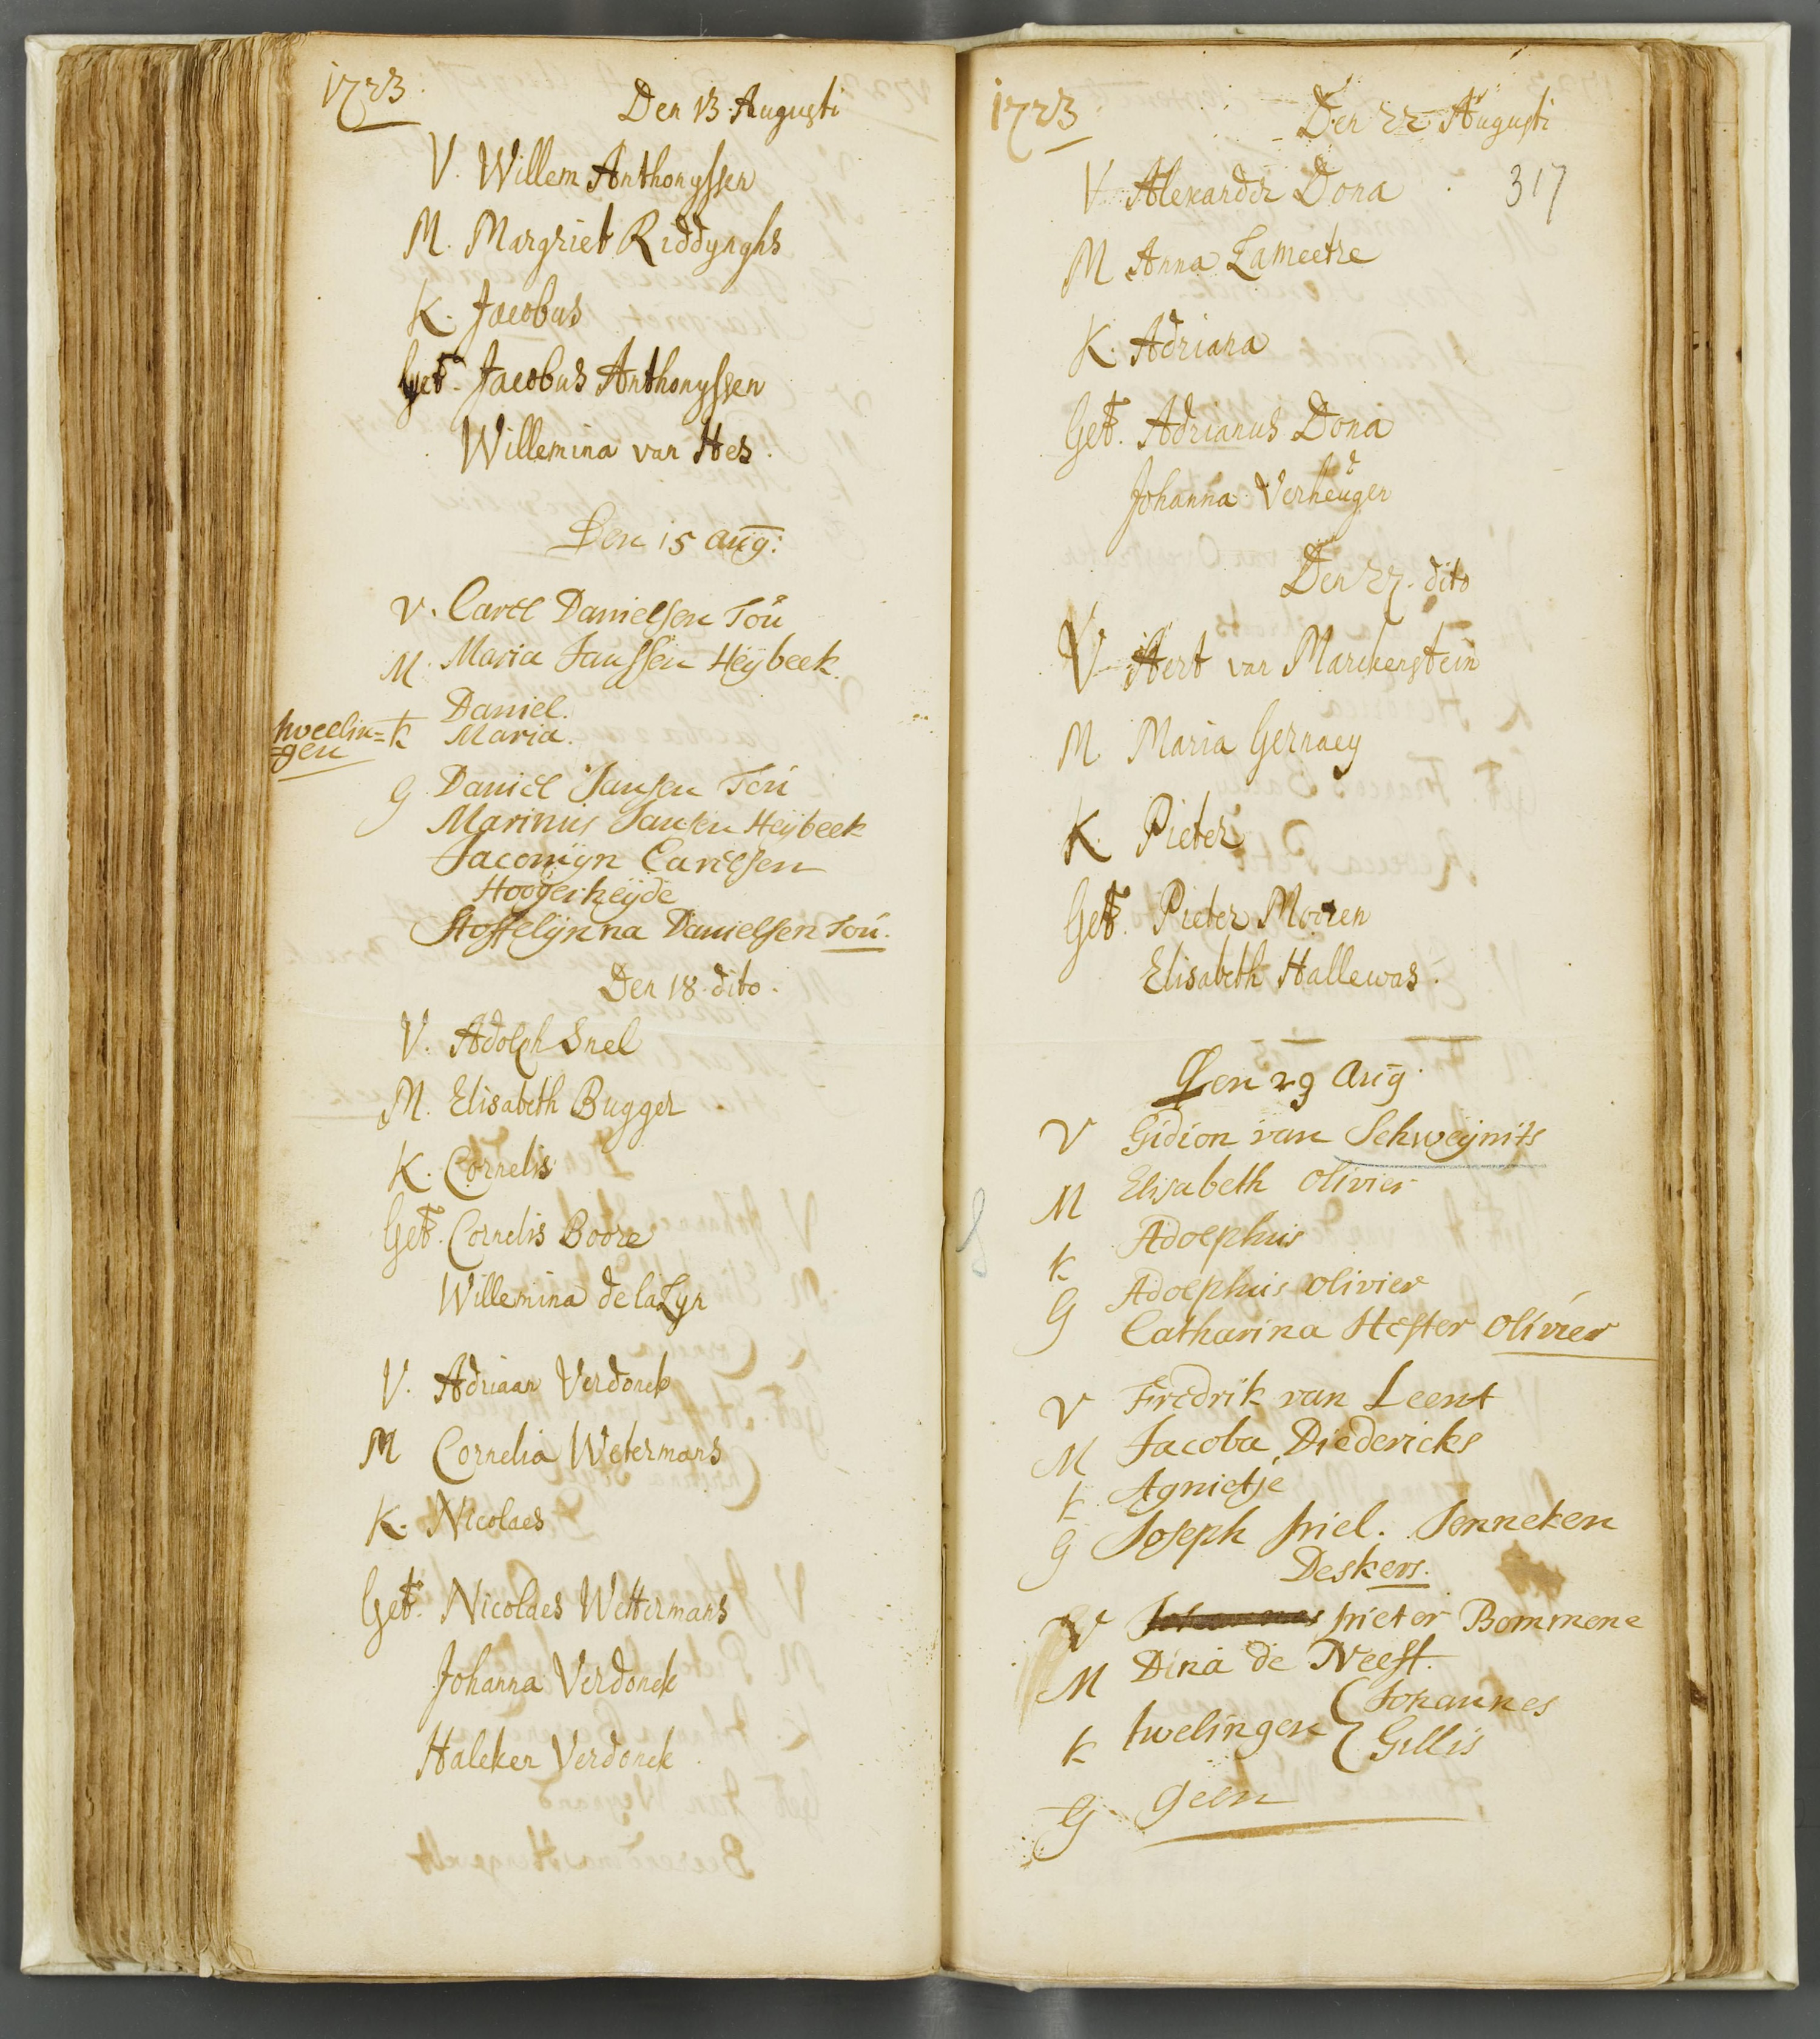 1723.
Den 13 Augusti
V. Willem Anthonyssen
M. Margriet Riddynghs
K. Jacobus
Get. Jacobus Anthonyssen
Willemina van Hes.
Den 15 aug:
V. Carel Danielsen Toú
M. Maria Janssen Heÿbeek.
Daniel.
tweelin= K Maria.
=gen
G Daniel Jansen Toú
Marinus Jansen Heÿbeek
Jacomÿn Carelsen
Hoogerheÿde
Stoffelÿnna Danielsen Toú.
Den 18 dito.
V. Adolph Snel
M. Elisabeth Bugger
K. Cornelis
Get. Cornelis Boore
Willemina de la Lyn
V. Adriaan Verdonck
M Cornelia Wetermans
K. Nicolaes
Get. Nicolaes Wettermans
Johanna Verdonck
Verdonck
1723.
Den 22 Augusti
317
V. Alexander Dona
M Anna Lameetre
K. Adriana
Get. Adrianus Dona
Johanna Verheugen
Den 27. dito
V Aert van Marckenstein
M Maria Gernaey
K. Pieter
Get. Pieter
Elisabeth Hallewas.
Den 29 aug.
V Gidion van Schweÿnits
M Elisabeth Olivier
K Adolphus
G Adolphus Olivier
Catharina Hester Olivier
V Fredrik van Leent
M Jacoba Diedericks
K Agnietje
G Joseph Jenneken
Deskers.
V Johannes pieter Bommene
M Dina de Neeff.
K twelingen { Johannes
Gillis
G geen